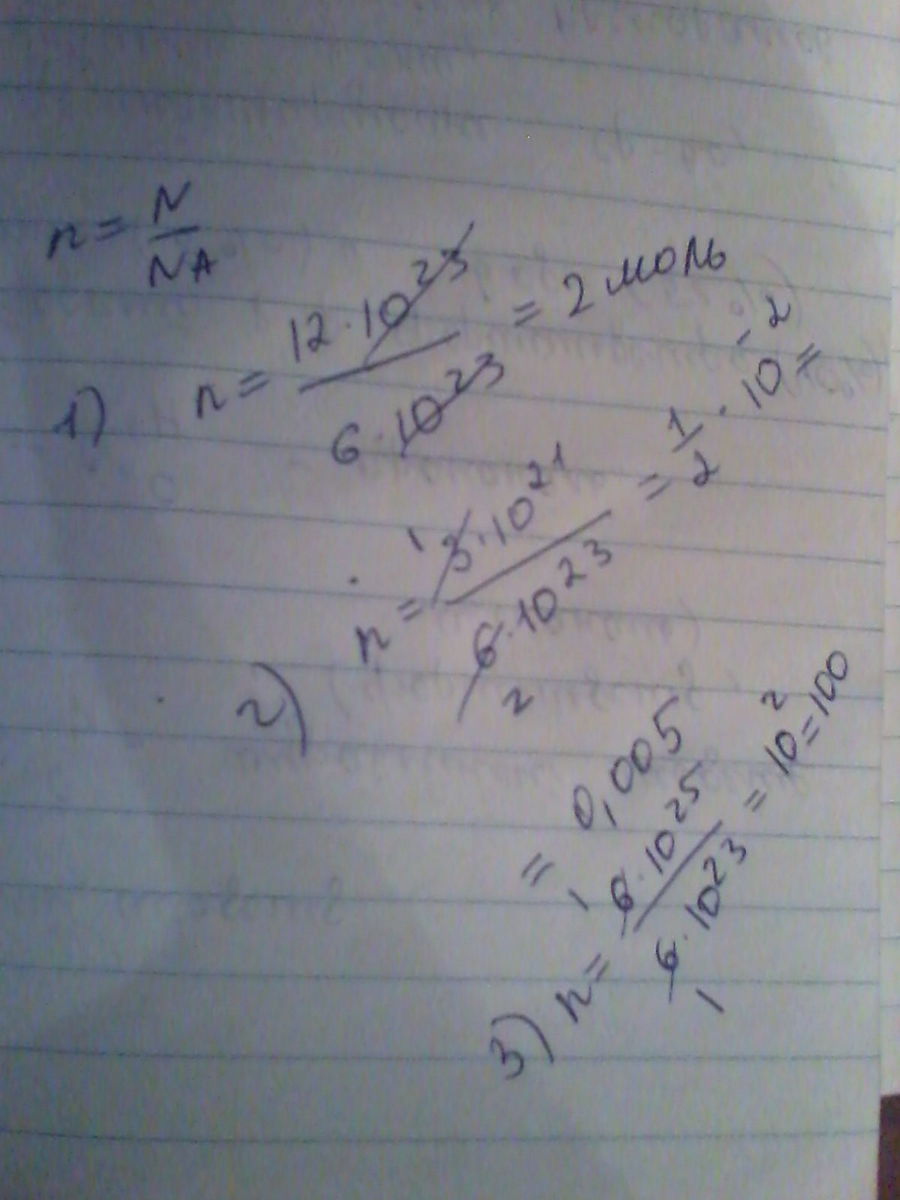 n = N / NA
1) n = 12 · 10²³ / 6 · 10²³ = 2 моль
2) n = ¹ 3 · 10²¹ / 6 · 10²³ ₂ = 1/2 · 10⁻² =
= 0,005
3) n = ¹ 6 · 10²⁵ / 6 · 10²³ ₁ = 10² = 100